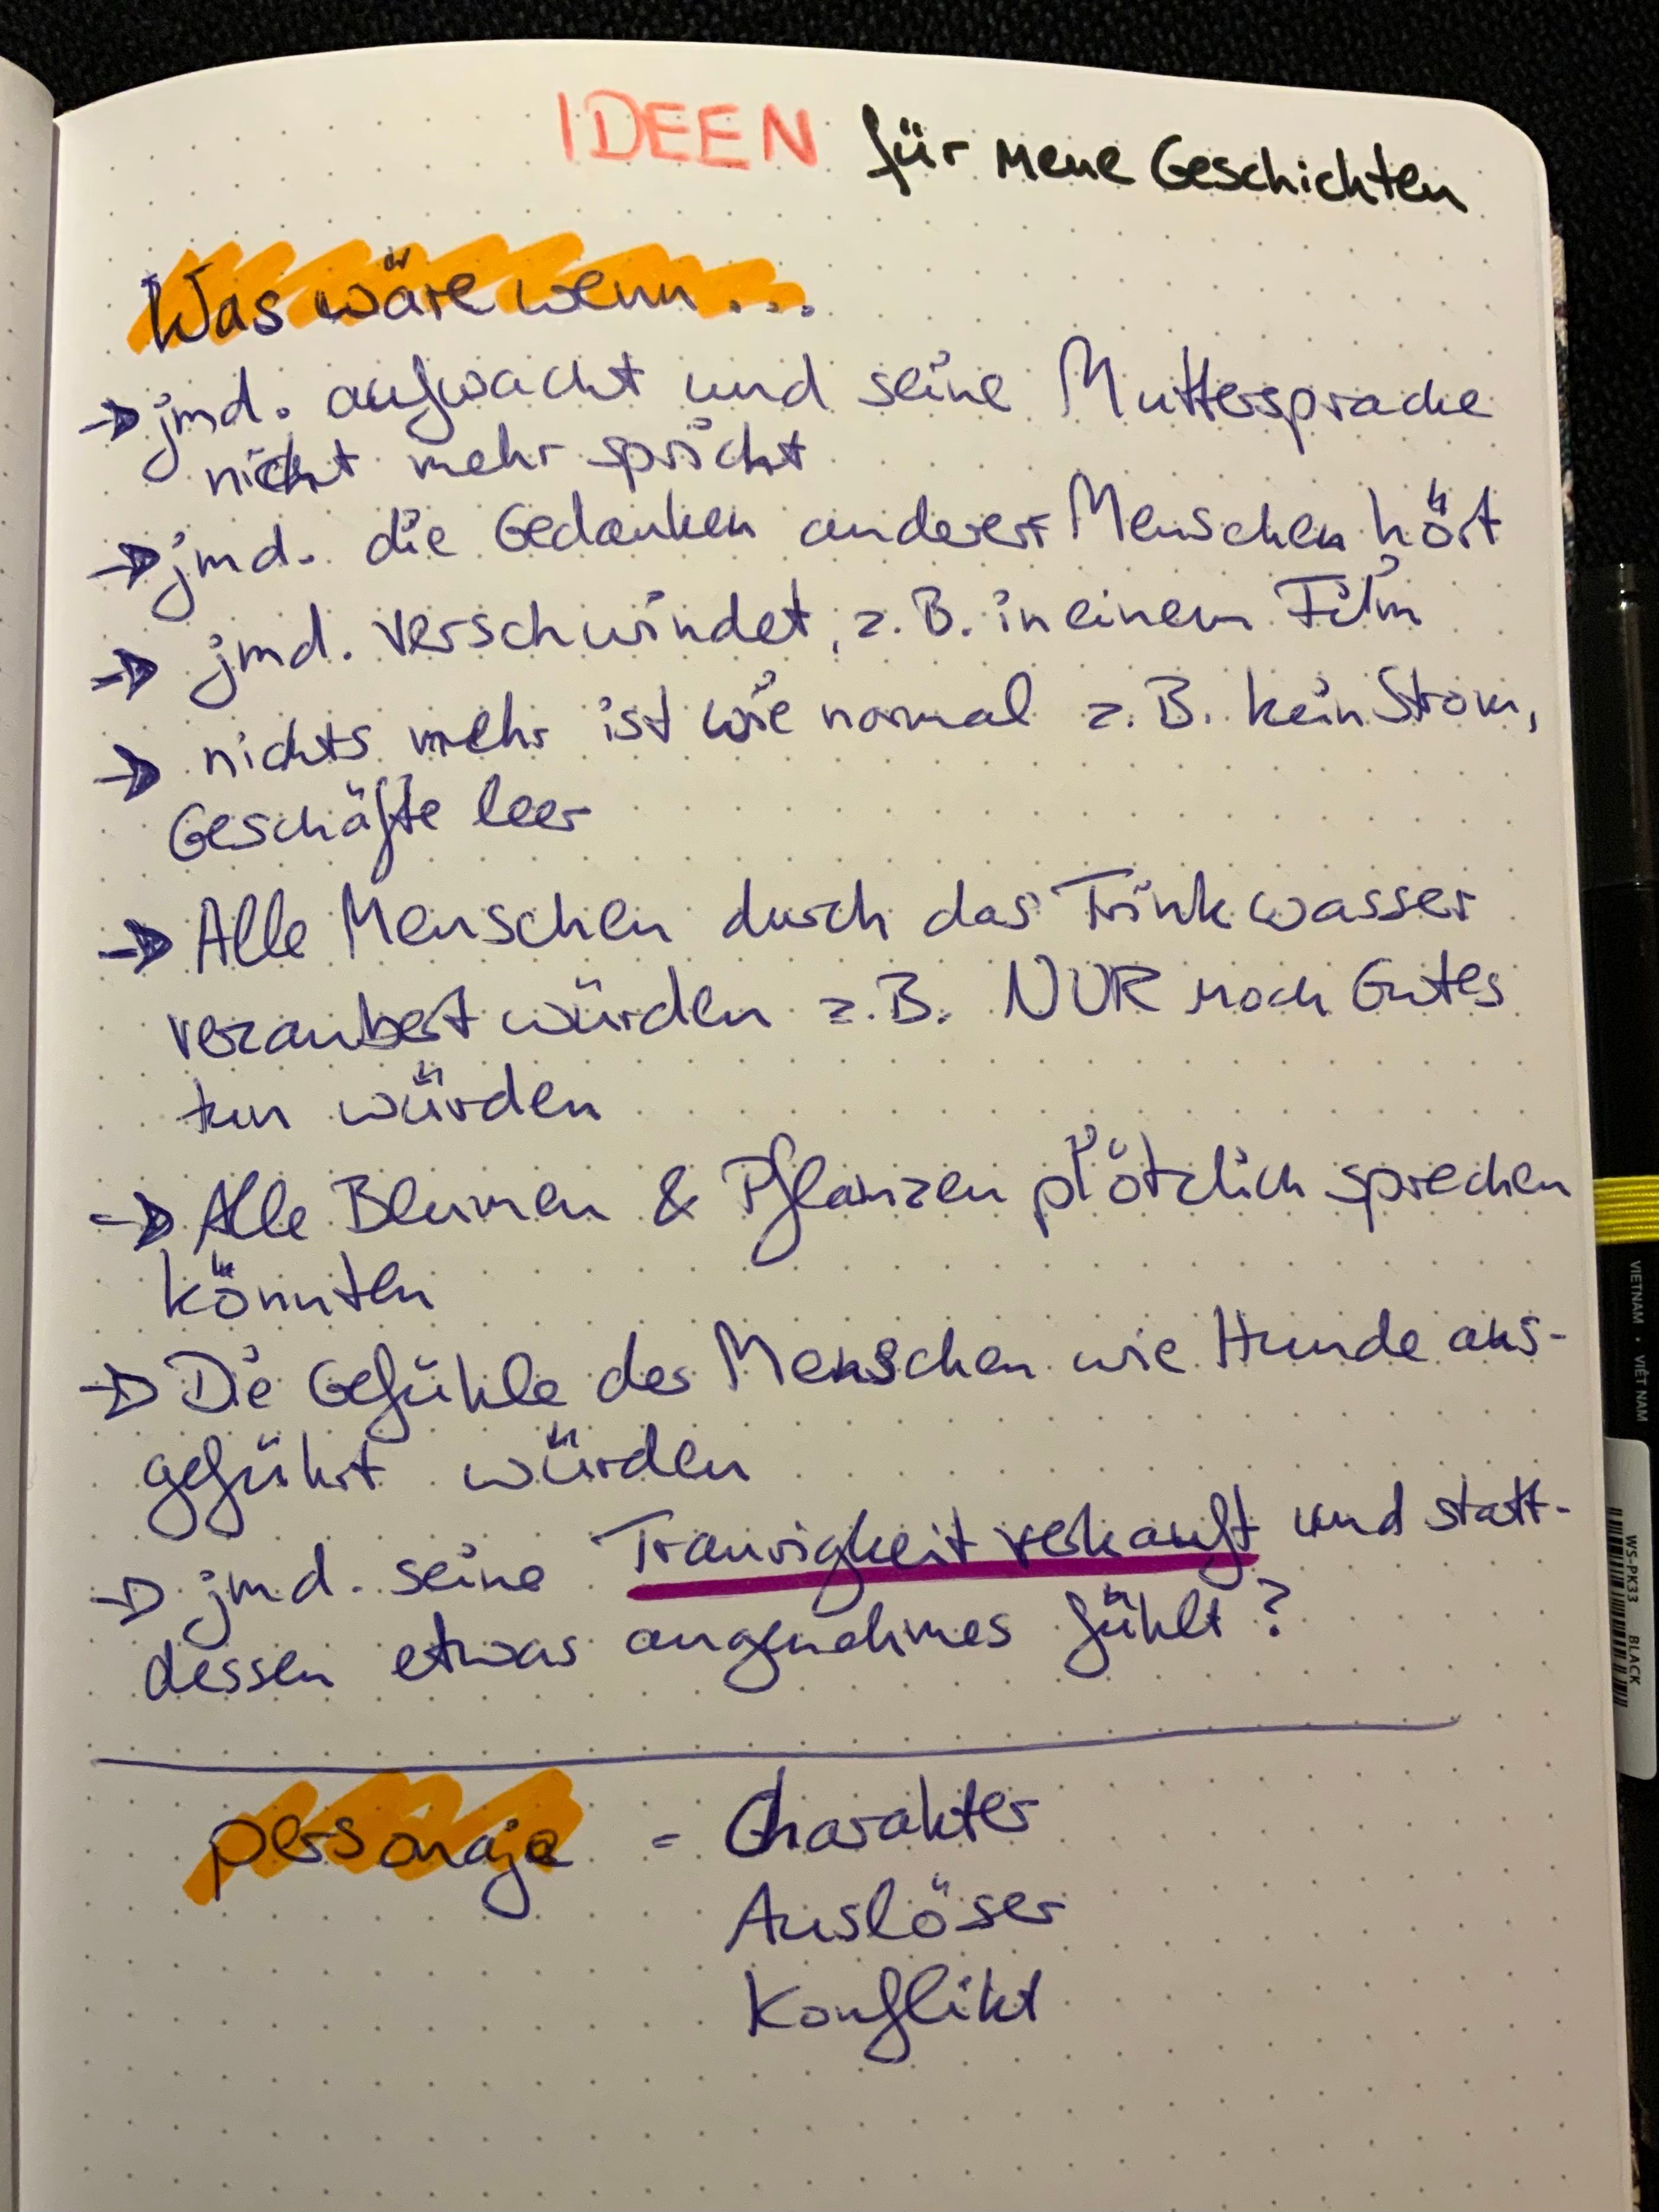 IDEEN für meine Geschichten
Was wäre wenn...
→ jmd. aufwacht und seine Muttersprache
nicht mehr spricht
→ jmd. die Gedanken anderer Menschen hört
→ jmd. verschwindet, z.B. in einem Film
→ nichts mehr ist wie normal z.B. kein Strom,
Geschäfte leer
→ Alle Menschen durch das Trinkwasser
verzaubert würden z.B. NUR noch Gutes
tun würden
→ Alle Blumen & Pflanzen plötzlich sprechen
könnten
→ Die Gefühle der Menschen wie Hunde aus-
geführt würden
→ jmd. seine Traurigkeit verkauft und statt-
dessen etwas angenehmes fühlt?
personaje = Charakter
Auslöser
Konflikt
VIETNAM · VIỆT NAM
WS-PK33 BLACK